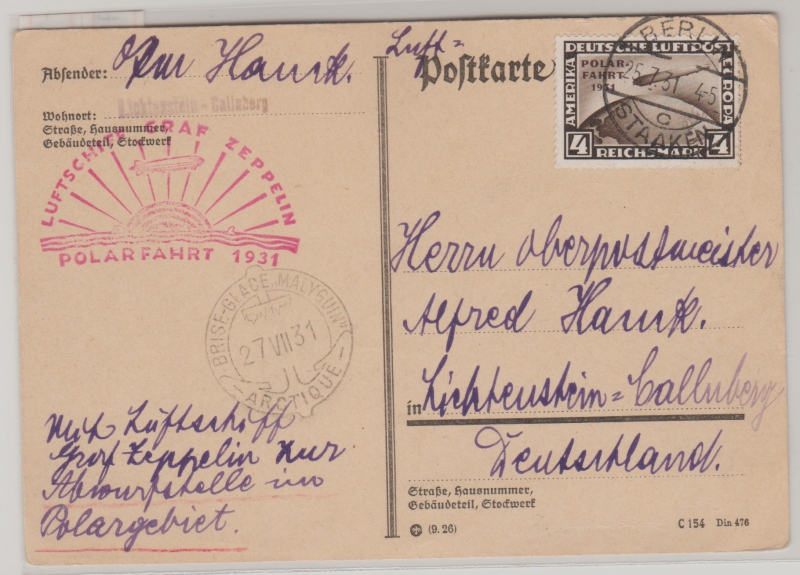 Absender: Opm Hauck.
Lichtenstein-Callnberg
Wohnort:
Straße, Hausnummer,
Gebäudeteil, Stockwerk
LUFTSCHIFF GRAF ZEPPELIN
POLARFAHRT 1931
BRISE-GLACE „MALYGUIN"
27 VII 31
ARCTIQUE
Mit Luftschiff
Graf Zeppelin nur
Abwurfstelle im
Polargebiet.
Luft=
Postkarte
DEUTSCHE LUFTPOST
POLAR-
FAHRT
1931
AMERIKA
EUROPA
4 REICHSMARK 4
BERLIN
25.7.31. 4-5
C
STAAKEN
Herrn Oberpostmeister
Alfred Hauck.
in Lichtenstein=Callnberg
Deutschland.
Straße, Hausnummer,
Gebäudeteil, Stockwerk
(9.26)
C 154 Din 476